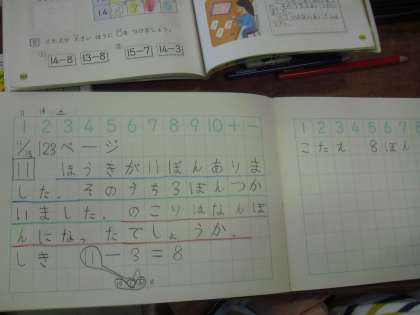 こたえが 大きい ほうに ○を つけましょう。
① 14-8 13-8 ② 15-7 14-3
1 2 3 4 5 6 7 8 9 10 + -
11/13 123ページ
11 ほうきが11ぽんありま
した。そのうち3ぼんつか
いました。のこりはなんぼ
んになったでしょうか。
しき 11-3=8
1 2 3 4 5 6 7 8
こたえ 8ほん